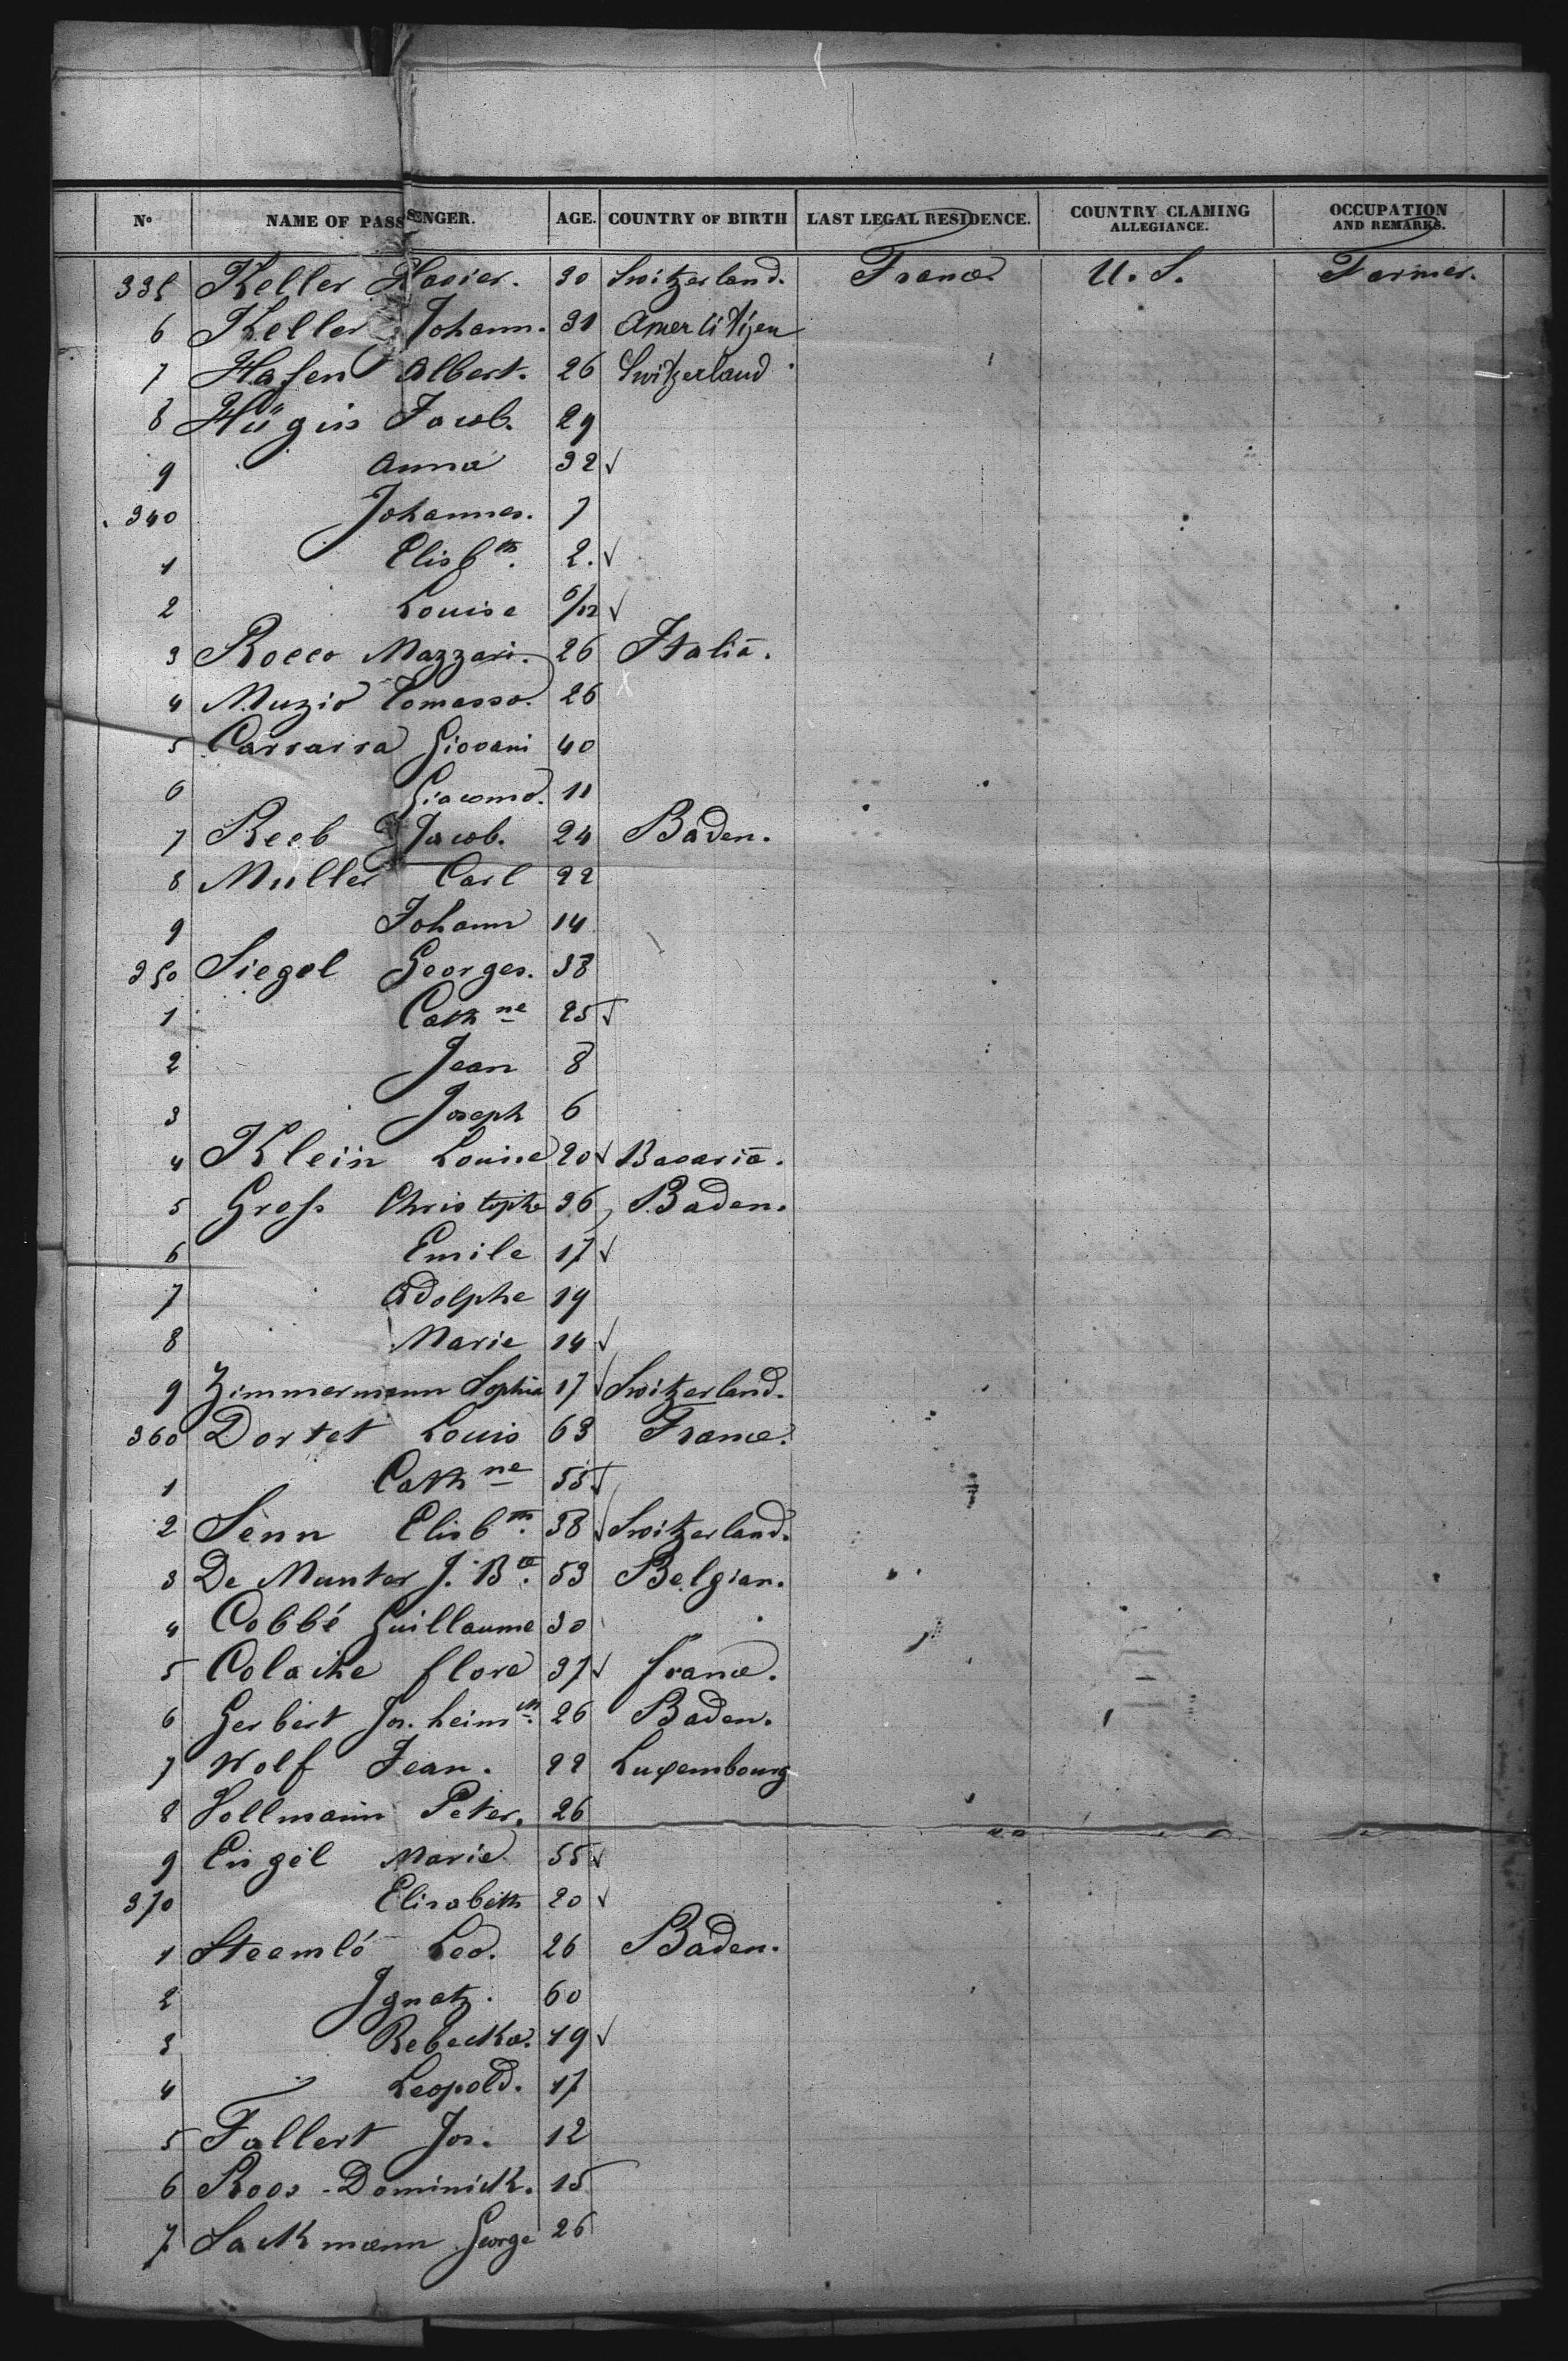 N° NAME OF PASSENGER. AGE. COUNTRY OF BIRTH LAST LEGAL RESIDENCE. COUNTRY CLAMING ALLEGIANCE. OCCUPATION AND REMARKS.
335 Keller Xavier. 30 Switzerland. France. U. S. Farmer.
6 Keller Johann. 31 Amer Citizen
7 Hafen Albert. 26 Switzerland
8 Hügin Jacob. 29
9 Anna 32 √
340 Johannes. 7
1 Elisbth. 2. √
2 Louise 6/12 √
3 Rocco Mazzari. 26 Italia.
4 Muzio Tomasso. 26
5 Carrarra Giovani 40
6 Giacomo. 11
7 Reeb Jacob. 24 Baden.
8 Muller Carl 22
9 Johann 14
350 Siegel Georges. 38
1 Cathne 25 √
2 Jean 8
3 Joseph 6
4 Klein Louise 20 √ Bavaria.
5 Gross Christophe 36 Baden.
6 Emile 17 √
7 Adolphe 19
8 Marie 14 √
9 Zimmermann Sophia 17 √ Switzerland.
360 Dortet Louis 63 France.
1 Cathne 55 √
2 Senn Elisbth. 38 √ Switzerland.
3 De Munter J. Bte. 53 Belgian.
4 Cobbé Guillaume 30
5 Colache flore 37 √ france.
6 Gerbert Jos. 26 Baden.
7 Wolf Jean. 22 Luxembourg
8 Vollmann Peter. 26
9 Engel Marie 55 √
370 Elisabeth 20 √
1 Steemlé Leo. 26 Baden.
2 Ignatz. 60
3 Rebecka. 19 √
4 Leopold. 17
5 Fallert Jos. 12
6 Roos - Dominick. 15
7 Sackmann George 26